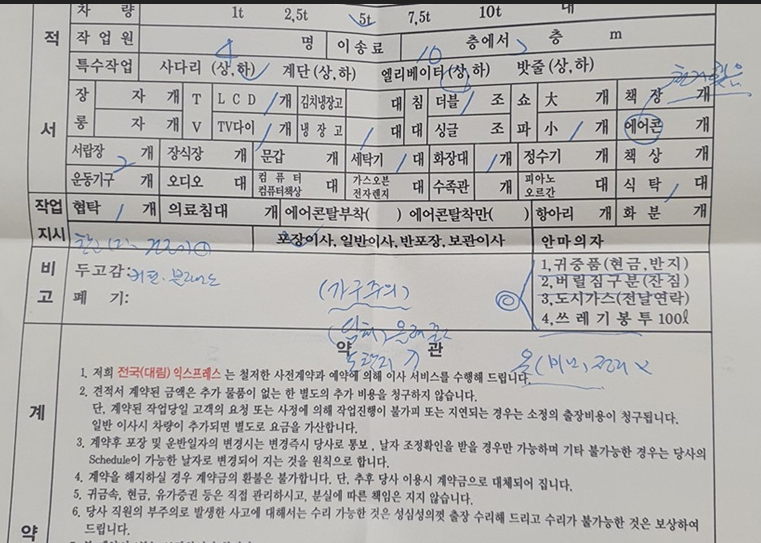 차 량 1t 2,5t 5t 7,5t 10t 대
적 작업원 4 명 이송료 10 층에서 층 m
특수작업 사다리 (상,하) 계단 (상,하) 엘리베이터 (상,하) 밧줄 (상,하)
장 자 개 T LCD 1 개 김치냉장고 대 침 더블 1 조 쇼 大 개 책 장 개
롱 자 개 V TV다이 1 개 냉 장 고 1 대 대 싱글 조 파 小 1 개 에어콘 개
서 서랍장 2 개 장식장 개 문갑 개 세탁기 1 대 화장대 1 개 정수기 개 책 상 개
운동기구 개 오디오 대 컴퓨터 컴퓨터책상 대 가스오븐 전자렌지 대 수족관 개 피아노 오르간 대 식 탁 1 대
작업 협탁 1 개 의료침대 개 에어콘탈부착( ) 에어콘탈착만( ) 항아리 개 화 분 개
지시 포장이사, 일반이사, 반포장, 보관이사 안마의자
비 두고감: 커튼·블라인드 1,귀중품(현금,반지)
2,버릴짐구분(잔짐)
고 폐 기: (가구주의) 3,도시가스(전달연락)
4,쓰레기봉투100l
약 관
1. 저희 전국(대림) 익스프레스 는 철저한 사전계약과 예약에 의해 이사 서비스를 수행해 드립니다.
계 2. 견적서 계약된 금액은 추가 물품이 없는 한 별도의 추가 비용을 청구하지 않습니다.
단, 계약된 작업당일 고객의 요청 또는 사정에 의해 작업진행이 불가피 또는 지연되는 경우는 소정의 출장비용이 청구됩니다.
일반 이사시 차량이 추가되면 별도로 요금을 가산합니다.
3. 계약후 포장 및 운반일자의 변경시는 변경즉시 당사로 통보, 날자 조정확인을 받을 경우만 가능하며 기타 불가능한 경우는 당사의
Schedule이 가능한 날자로 변경되어 지는 것을 원칙으로 합니다.
4. 계약을 해지하실 경우 계약금의 환불은 불가합니다. 단, 추후 당사 이용시 계약금으로 대체되어 집니다.
5. 귀금속, 현금, 유가증권 등은 직접 관리하시고, 분실에 따른 책임은 지지 않습니다.
약 6. 당사 직원의 부주의로 발생한 사고에 대해서는 수리 가능한 것은 성심성의껏 출장 수리해 드리고 수리가 불가능한 것은 보상하여
드립니다.